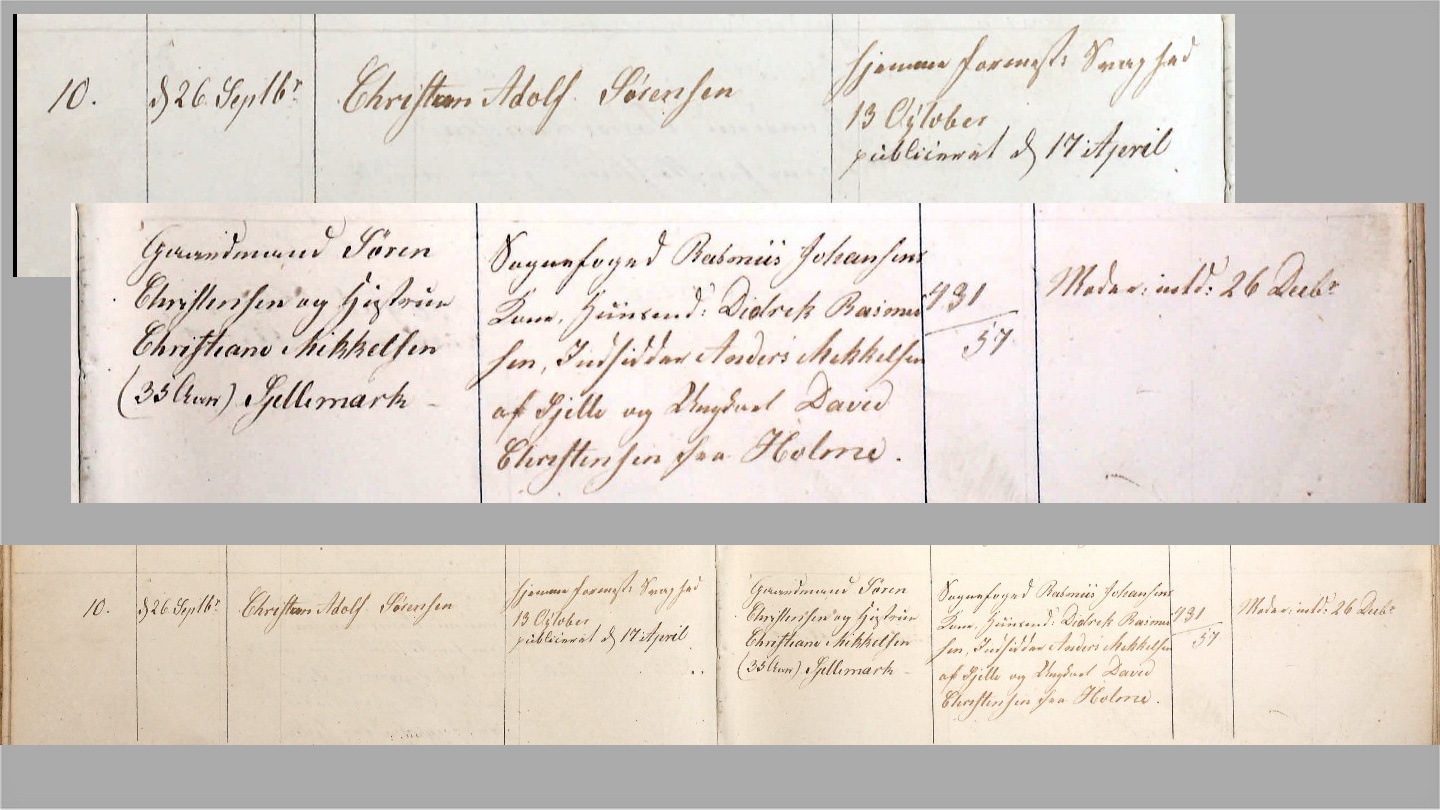 10.
d 26 Septbr
Christian Adolf Sørensen
hjemme formedst: Svaghed
13 October
publiceret d 17 April
Gaardmand Søren
Christensen og Hustrue
Christiane Mikkelsen
(35 Aar) Hjellemark
Sognefoged Rasmus Johansens
Kone, Huusmd: Didrek Rasmus
sen, Indsidder Anders Mikkelsen
af Hjelle og Ungkarl David
Christensen fra Holme.
431
57
Moder: intd: 26 Decbr
10.
d 26 Septbr
Christian Adolf Sørensen
hjemme formedst: Svaghed
13 October
publiceret d 17 April
Gaardmand Søren
Christensen og Hustrue
Christiane Mikkelsen
(35 Aar) Hjellemark
Sognefoged Rasmus Johansens
Kone, Huusmd: Didrek Rasmus
sen, Indsidder Anders Mikkelsen
af Hjelle og Ungkarl David
Christensen fra Holme.
431
57
Moder: intd: 26 Decbr